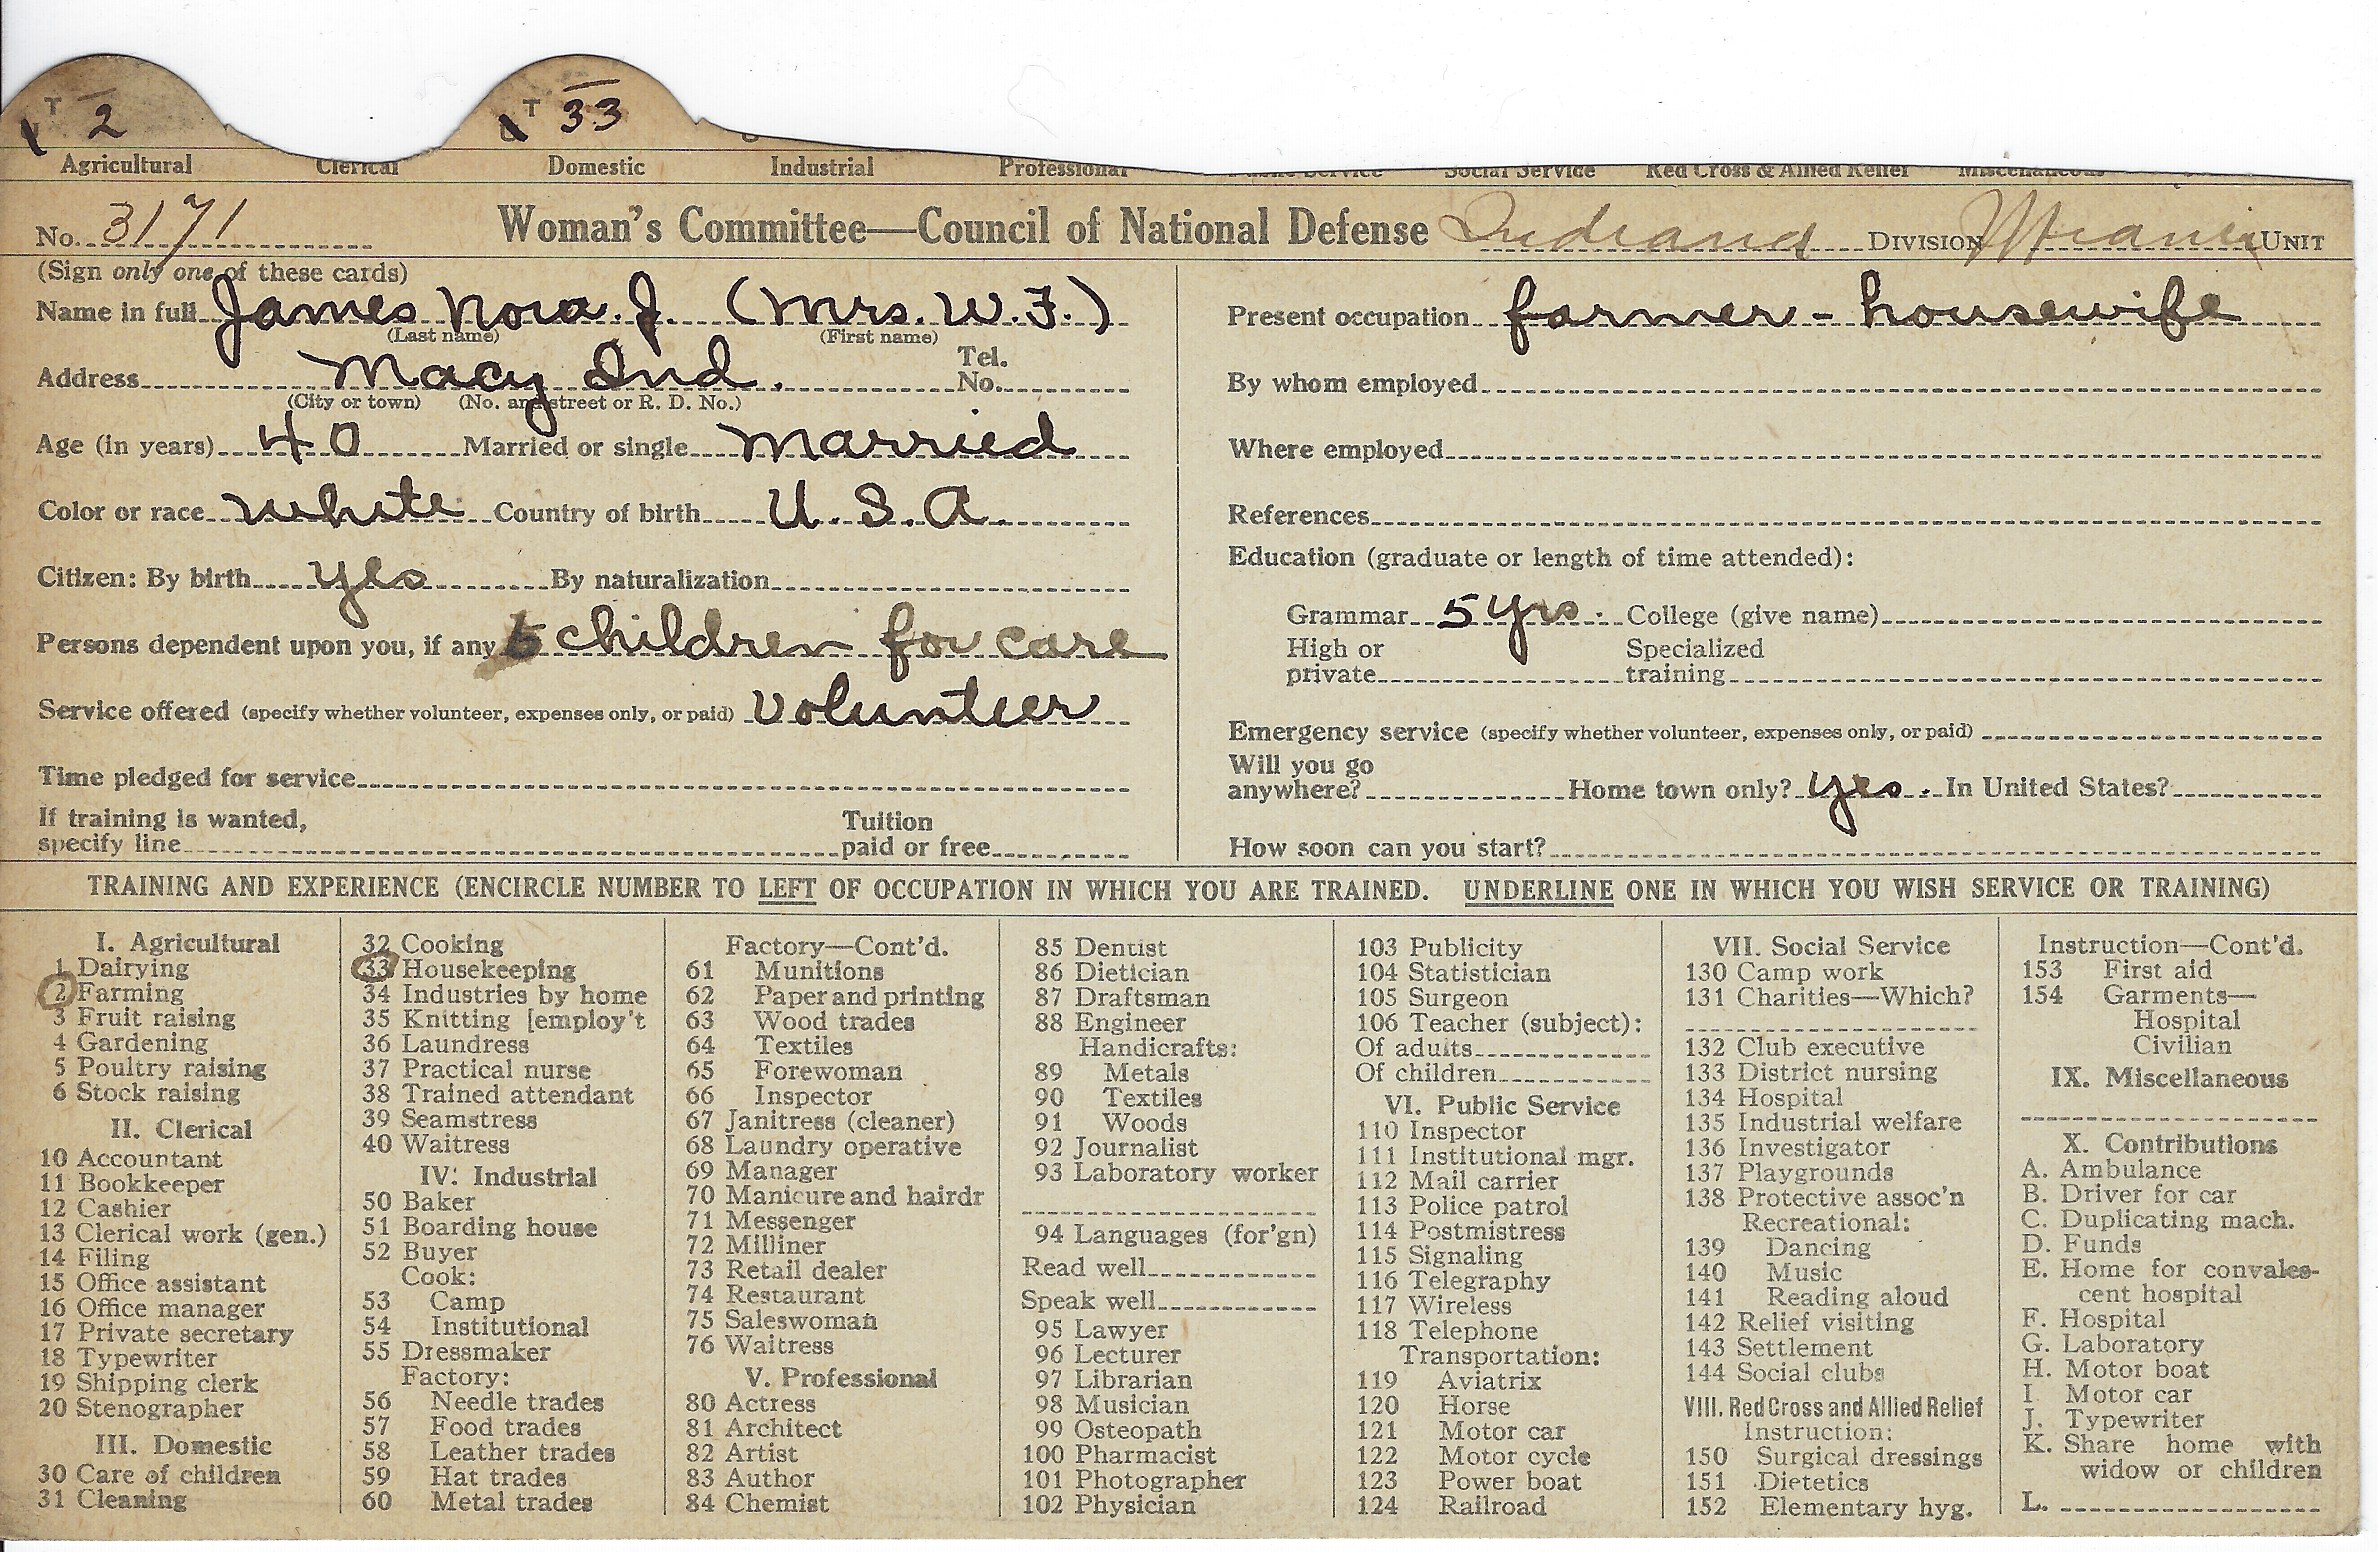 T 2 T 33
Agricultural Clerical Domestic Industrial Professional Public Service Social Service Red Cross & Allied Relief Miscellaneous
No. 3171 Woman's Committee—Council of National Defense Indiana DIVISION Miami UNIT
(Sign only one of these cards)
Name in full James Nora. J. (Mrs. W. F.)
(Last name) (First name)
Address Macy Ind. Tel. No.
(City or town) (No. and street or R. D. No.)
Age (in years) 40 Married or single married
Color or race white Country of birth U. S. A.
Citizen: By birth yes By naturalization
Persons dependent upon you, if any 5 children for care
Service offered (specify whether volunteer, expenses only, or paid) Volunteer
Time pledged for service
If training is wanted, specify line Tuition paid or free
Present occupation farmer - housewife
By whom employed
Where employed
References
Education (graduate or length of time attended):
Grammar 5 yrs. College (give name)
High or private Specialized training
Emergency service (specify whether volunteer, expenses only, or paid)
Will you go anywhere? Home town only? yes. In United States?
How soon can you start?
TRAINING AND EXPERIENCE (ENCIRCLE NUMBER TO LEFT OF OCCUPATION IN WHICH YOU ARE TRAINED. UNDERLINE ONE IN WHICH YOU WISH SERVICE OR TRAINING)
I. Agricultural
1 Dairying
2 Farming
3 Fruit raising
4 Gardening
5 Poultry raising
6 Stock raising
II. Clerical
10 Accountant
11 Bookkeeper
12 Cashier
13 Clerical work (gen.)
14 Filing
15 Office assistant
16 Office manager
17 Private secretary
18 Typewriter
19 Shipping clerk
20 Stenographer
III. Domestic
30 Care of children
31 Cleaning
32 Cooking
33 Housekeeping
34 Industries by home
35 Knitting [employ't
36 Laundress
37 Practical nurse
38 Trained attendant
39 Seamstress
40 Waitress
IV. Industrial
50 Baker
51 Boarding house
52 Buyer
Cook:
53 Camp
54 Institutional
55 Dressmaker
Factory:
56 Needle trades
57 Food trades
58 Leather trades
59 Hat trades
60 Metal trades
Factory—Cont'd.
61 Munitions
62 Paper and printing
63 Wood trades
64 Textiles
65 Forewoman
66 Inspector
67 Janitress (cleaner)
68 Laundry operative
69 Manager
70 Manicure and hairdr
71 Messenger
72 Milliner
73 Retail dealer
74 Restaurant
75 Saleswoman
76 Waitress
V. Professional
80 Actress
81 Architect
82 Artist
83 Author
84 Chemist
85 Dentist
86 Dietician
87 Draftsman
88 Engineer
Handicrafts:
89 Metals
90 Textiles
91 Woods
92 Journalist
93 Laboratory worker
94 Languages (for'gn)
Read well
Speak well
95 Lawyer
96 Lecturer
97 Librarian
98 Musician
99 Osteopath
100 Pharmacist
101 Photographer
102 Physician
103 Publicity
104 Statistician
105 Surgeon
106 Teacher (subject):
Of adults
Of children
VI. Public Service
110 Inspector
111 Institutional mgr.
112 Mail carrier
113 Police patrol
114 Postmistress
115 Signaling
116 Telegraphy
117 Wireless
118 Telephone
Transportation:
119 Aviatrix
120 Horse
121 Motor car
122 Motor cycle
123 Power boat
124 Railroad
VII. Social Service
130 Camp work
131 Charities—Which?
132 Club executive
133 District nursing
134 Hospital
135 Industrial welfare
136 Investigator
137 Playgrounds
138 Protective assoc'n
Recreational:
139 Dancing
140 Music
141 Reading aloud
142 Relief visiting
143 Settlement
144 Social clubs
VIII. Red Cross and Allied Relief
Instruction:
150 Surgical dressings
151 Dietetics
152 Elementary hyg.
Instruction—Cont'd.
153 First aid
154 Garments—
Hospital
Civilian
IX. Miscellaneous
X. Contributions
A. Ambulance
B. Driver for car
C. Duplicating mach.
D. Funds
E. Home for convales-
cent hospital
F. Hospital
G. Laboratory
H. Motor boat
I Motor car
J. Typewriter
K. Share home with
widow or children
L.